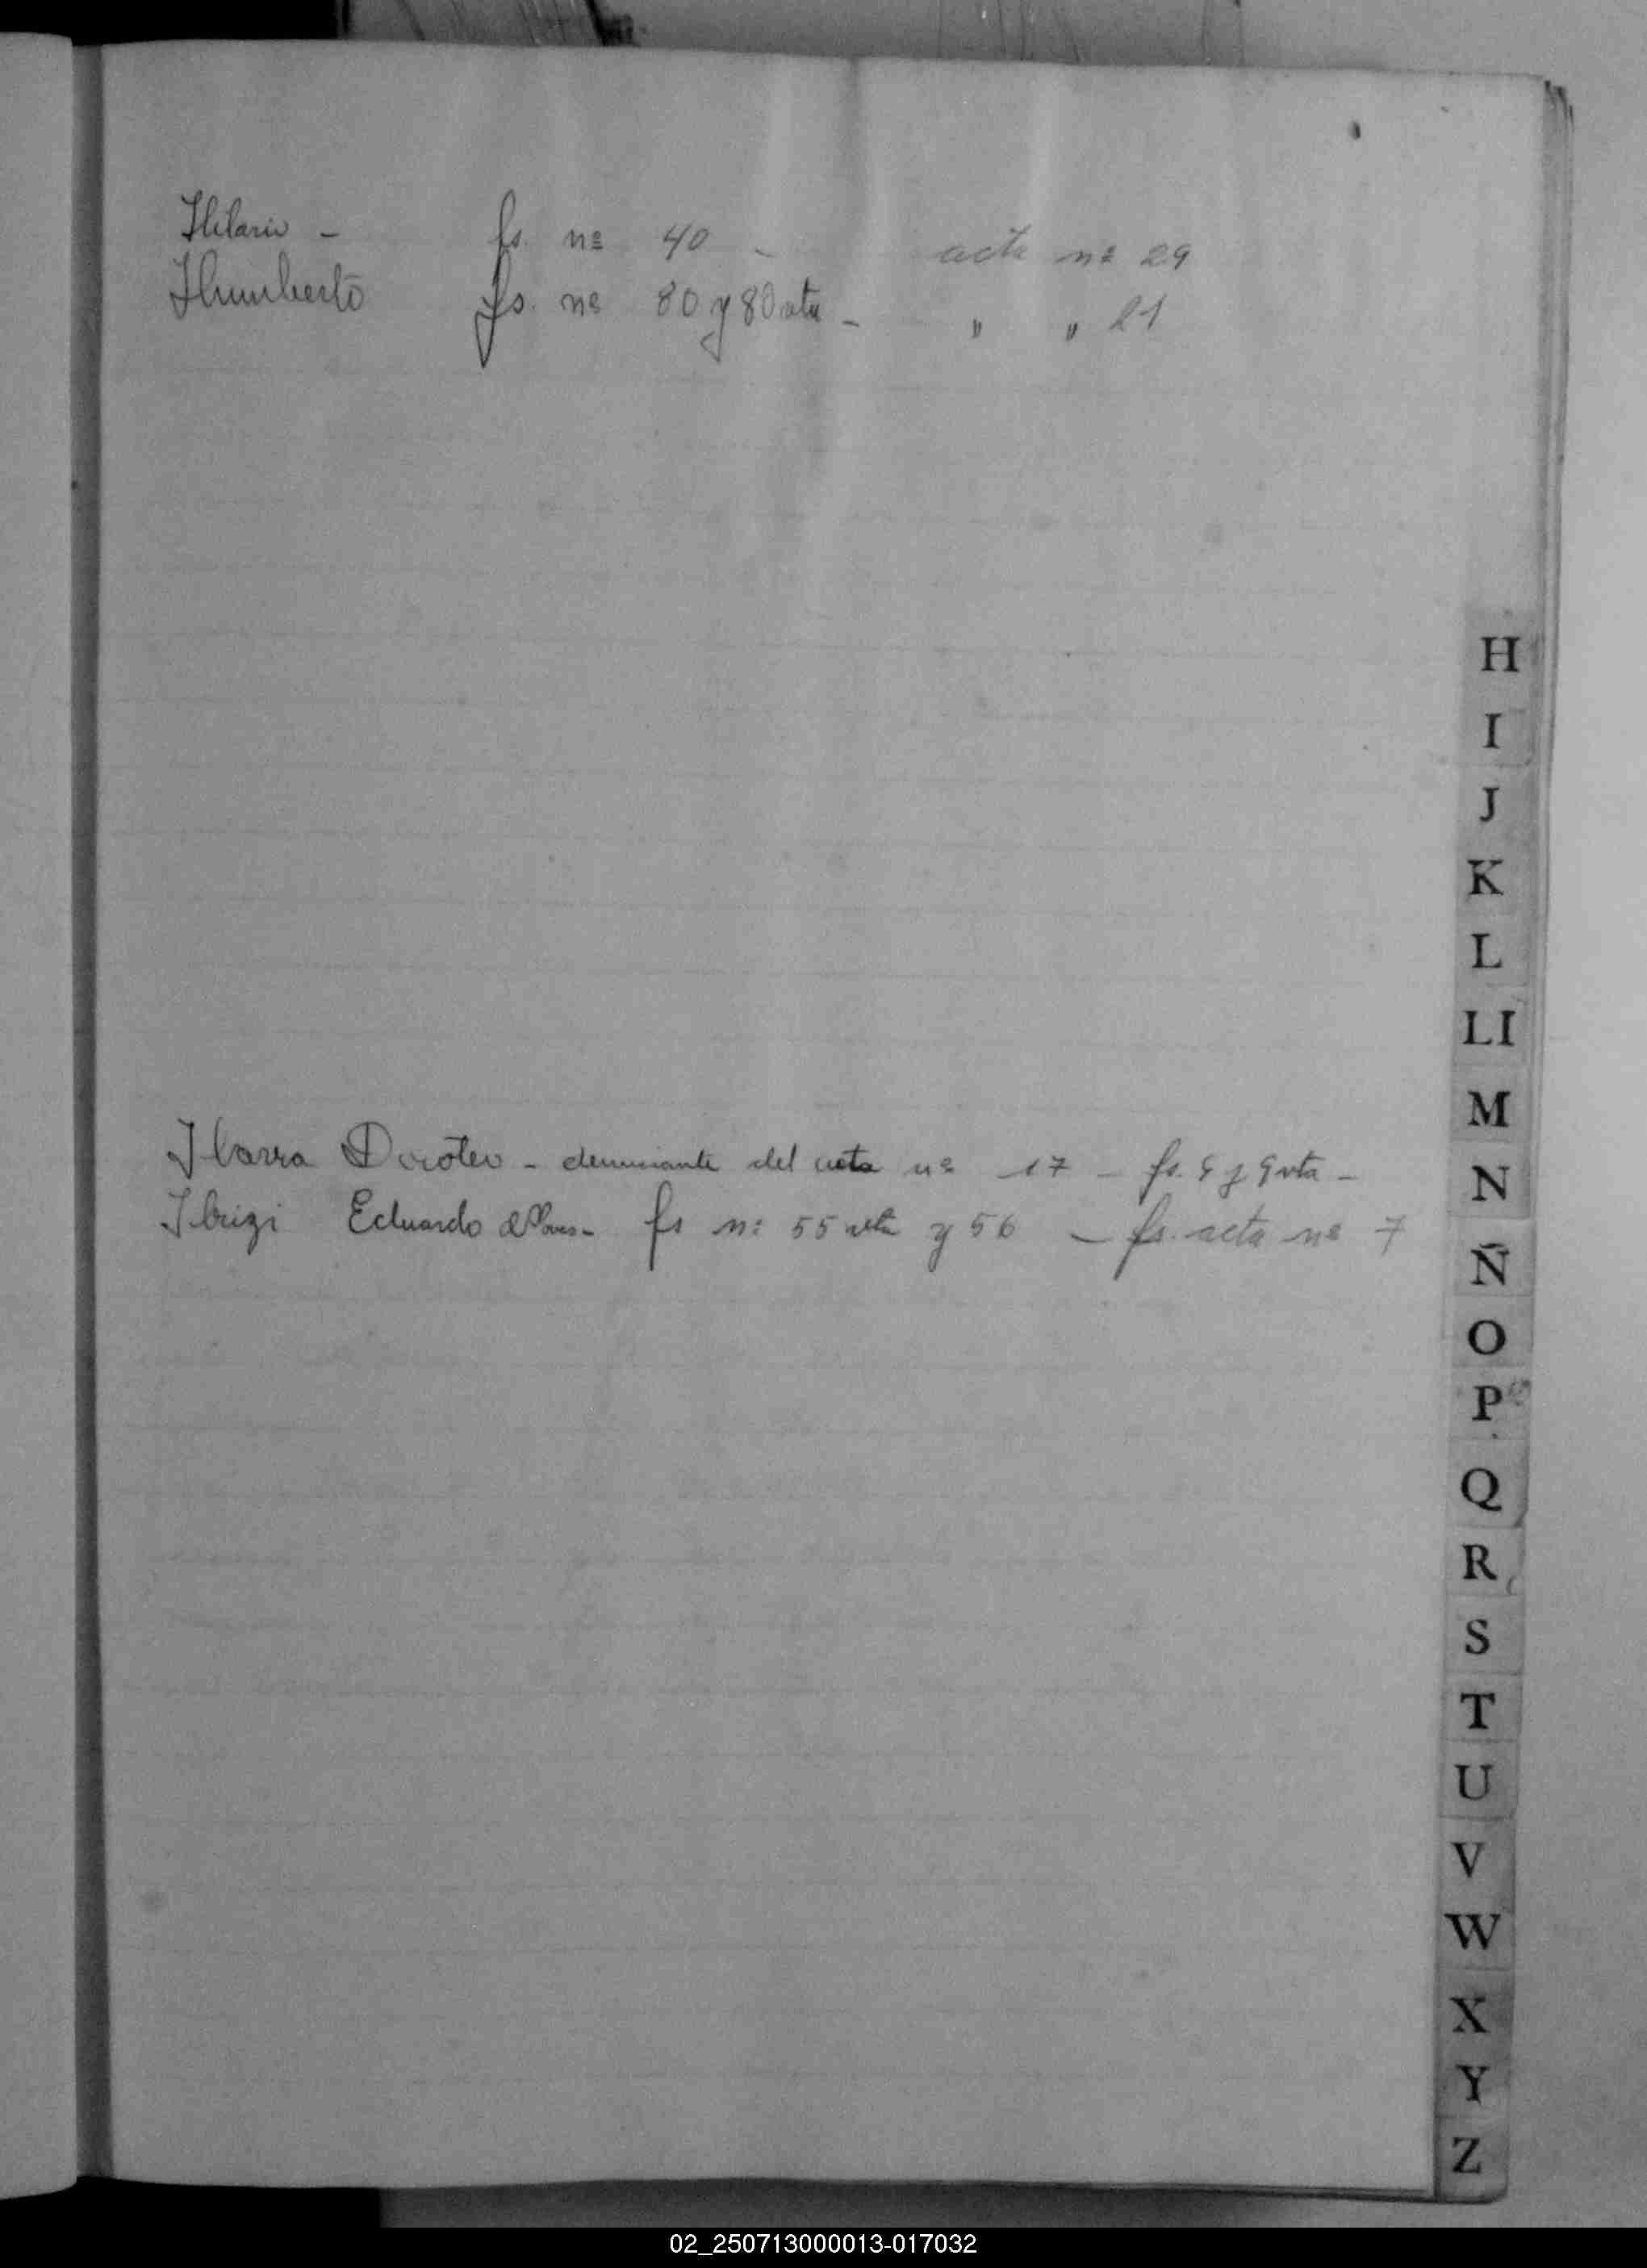 Hilario - fs. nº 40 - acta nº 29
Humberto fs. nº 80 y 80 vta - " " 21
H
I
J
K
L
LI
M
Ibarra Doroteo - denunciante del acta nº 17 - fs. 9 y 9 vta -
N
Ibrizi Eduardo fs nº 55 vta y 56 - fs. acta nº 7
Ñ
O
P
Q
R
S
T
U
V
W
X
Y
Z
02_250713000013-017032